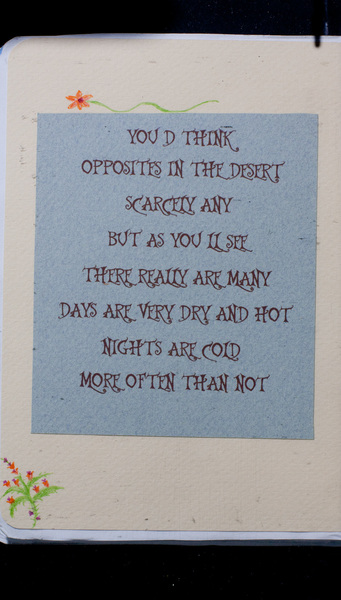 YOU D THINK
OPPOSITES IN THE DESERT
SCARCELY ANY
BUT AS YOU LL SEE
THERE REALLY ARE MANY
DAYS ARE VERY DRY AND HOT
NIGHTS ARE COLD
MORE OFTEN THAN NOT